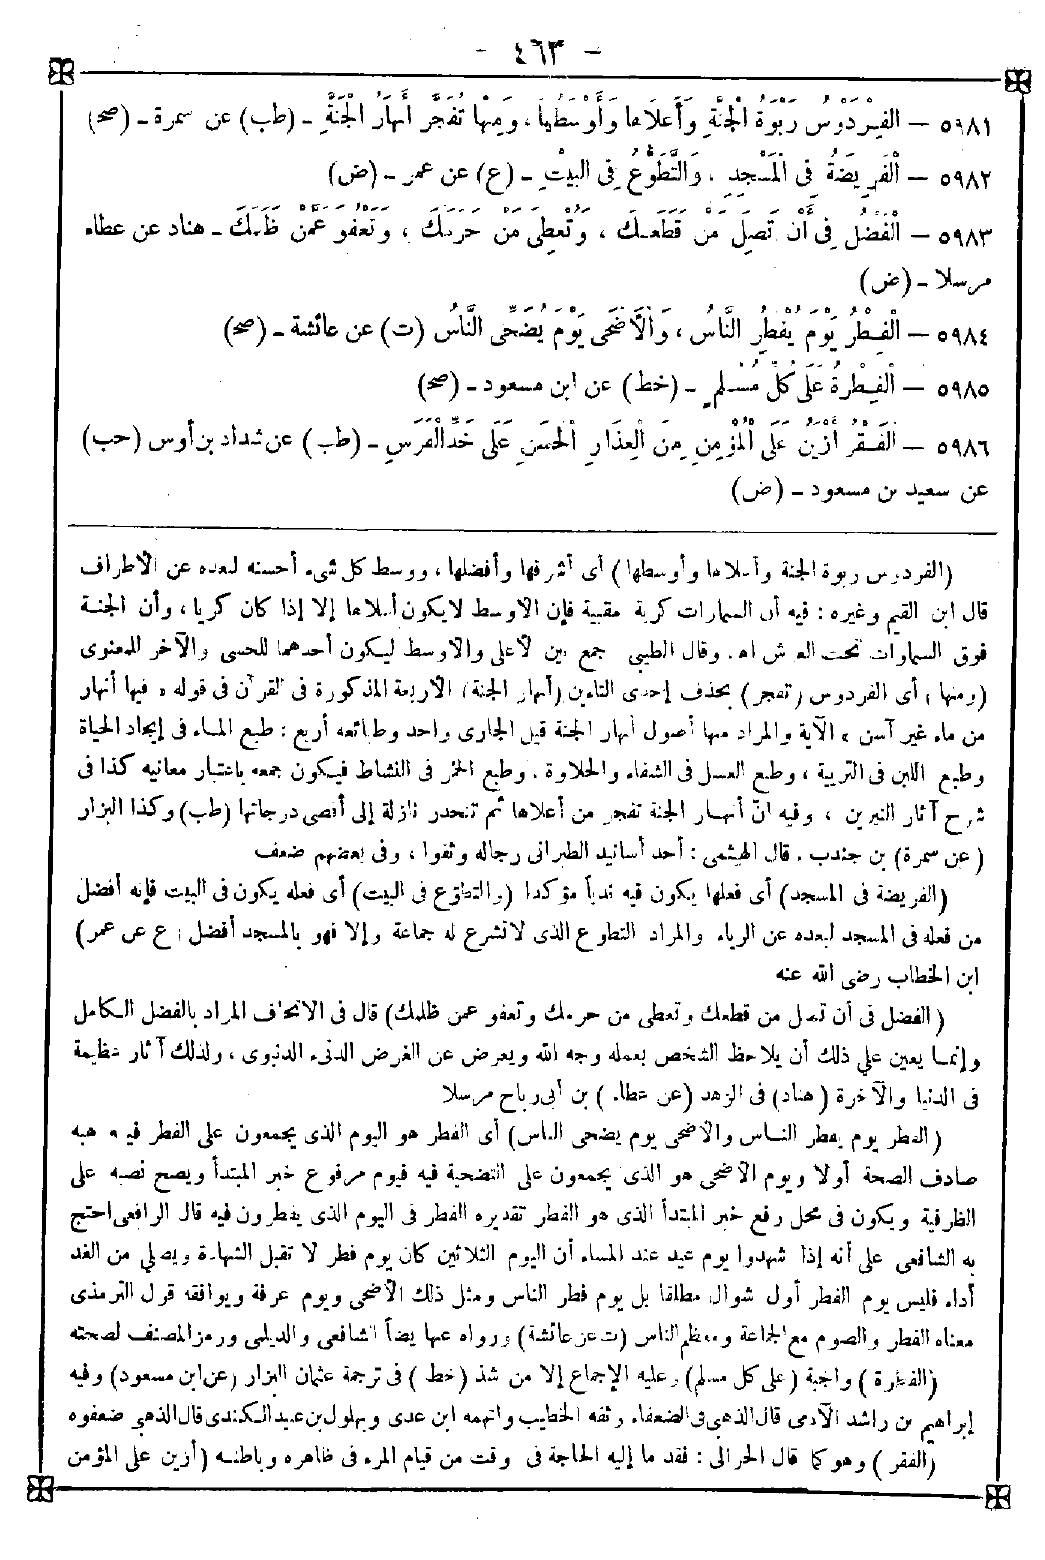 - ٤٦٣ -
٥٩٨١ — الْفِرْدَوْسُ رَبْوَةُ الْجَنَّةِ وَأَعْلَاهَا وَأَوْسَطُهَا، وَمِنْهَا تُفَجَّرُ أَنْهَارُ الْجَنَّةِ - (طب) عن سمرة - (صح)
٥٩٨٢ — الْفَرِيضَةُ فِى الْمَسْجِدِ ، وَالتَّطَوُّعُ فِى الْبَيْتِ - (ع) عن عمر - (ض)
٥٩٨٣ — الْفَضْلُ فِى أَنْ تَصِلَ مَنْ قَطَعَكَ ، وَتُعْطِىَ مَنْ حَرَمَكَ ، وَتَعْفُوَ عَمَّنْ ظَلَمَكَ - هناد عن عطاء
مرسلا - (ض)
٥٩٨٤ — الْفِطْرُ يَوْمَ يُفْطِرُ النَّاسُ ، وَالْأَضْحَى يَوْمَ يُضَحِّى النَّاسُ (ت) عن عائشة - (صح)
٥٩٨٥ — الْفِطْرَةُ عَلَى كُلِّ مُسْلِمٍ - (خط) عن ابن مسعود - (صح)
٥٩٨٦ — الْفَقْرُ أَزْيَنُ عَلَى الْمُؤْمِنِ مِنَ الْعِذَارِ الْحَسَنِ عَلَى خَدِّ الْفَرَسِ - (طب) عن شداد بن أوس (حب)
عن سعيد بن مسعود - (ض)
(الفردوس ربوة الجنة وأعلاها وأوسطها) أى أشرفها وأفضلها ، ووسط كل شىء أحسنه لبعده عن الأطراف
قال ابن القيم وغيره : فيه أن السماوات كرية مقببة فإن الأوسط لايكون أعلاها إلا إذا كان كريا ، وأن الجنة
فوق السماوات تحت العرش اه. وقال الطيبى جمع بين الأعلى والأوسط ليكون أحدهما للحسى والآخر للمعنوى
(ومنها) أى الفردوس (تفجر) بحذف إحدى التاءين (أنهار الجنة) الأربعة المذكورة فى القرآن فى قوله «فيها أنهار
من ماء غير آسن» الآية والمراد منها أصول أنهار الجنة قيل الجارى واحد وطبائعه أربع : طبع الماء فى إيجاد الحياة
وطبع اللبن فى التربية ، وطبع العسل فى الشفاء والحلاوة . وطبع الخمر فى النشاط فيكون جمعه باعتبار معانيه كذا فى
شرح آثار النيرين ، وفيه أنّ أنهار الجنة تفجر من أعلاها ثم تنحدر نازلة إلى أقصى درجاتها (طب) وكذا البزار
(عن سمرة) بن جندب . قال الهيثمى : أحد أسانيد الطبرانى رجاله وثقوا ، وفى بعضهم ضعف
(الفريضة فى المسجد) أى فعلها يكون فيه ندباً مؤكدا (والتطوّع فى البيت) أى فعله يكون فى البيت فإنه أفضل
من فعله فى المسجد لبعده عن الرياء والمراد التطوع الذى لاتشرع له جماعة وإلا فهو بالمسجد أفضل (ع عن عمر)
ابن الخطاب رضى الله عنه
(الفضل فى أن تصل من قطعك وتعطى من حرمك وتعفو عمن ظلمك) قال فى الاتحاف المراد بالفضل الكامل
وإنما يعين على ذلك أن يلاحظ الشخص بعمله وجه الله ويعرض عن الغرض الدنىء الدنيوى ، ولذلك آثار عظيمة
فى الدنيا والآخرة (هناد) فى الزهد (عن عطاء) بن أبى رباح مرسلا
(الفطر يوم يفطر الناس والأضحى يوم يضحى الناس) أى الفطر هو اليوم الذى يجمعون على الفطر فيه هبه
صادف الصحة أولا ويوم الأضحى هو الذى يجمعون على التضحية فيه فيوم مرفوع خبر المبتدأ ويصح نصبه على
الظرفية ويكون فى محل رفع خبر المبتدأ الذى هو الفطر تقديره الفطر فى اليوم الذى يفطرون فيه قال الرافعى احتج
به الشافعى على أنه إذا شهدوا يوم عيد عند المساء أن اليوم الثلاثين كان يوم فطر لا تقبل الشهادة ويصلى من الغد
أداء فليس يوم الفطر أول شوال مطلقا بل يوم فطر الناس ومثل ذلك الأضحى ويوم عرفة ويوافقه قول الترمذى
معناه الفطر والصوم مع الجماعة ومعظم الناس (ت عن عائشة) ورواه عنها أيضاً الشافعى والديلمى ورمز المصنف لصحته
(الفطرة) واجبة (على كل مسلم) وعليه الإجماع إلا من شذ (خط) فى ترجمة عثمان البزار (عن ابن مسعود) وفيه
إبراهيم بن راشد الآدمى قال الذهبى فى الضعفاء وثقه الخطيب واتهمه ابن عدى وبهلول بن عبيد الكندى قال الذهبى ضعفوه
(الفقر) وهو كما قال الحرالى : فقد ما إليه الحاجة فى وقت من قيام المرء فى ظاهره وباطنه (أزين على المؤمن